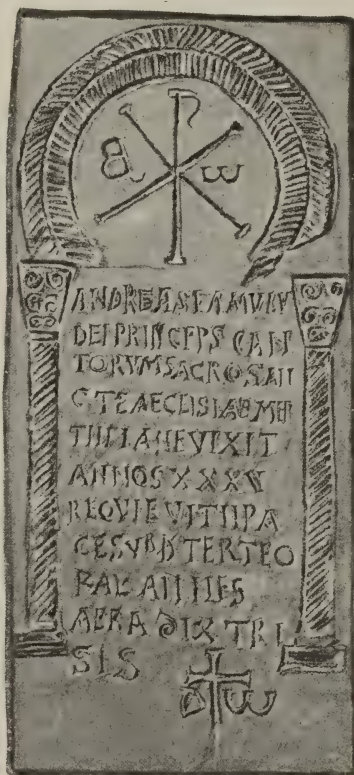 Α ω
ANDREAS FAMULU
DEI PRINCEPS CAN
TORUM SACROSAN
CTE AECLISIAE MER
TILIANE VIXIT
ANNOS XXXV
REQVIEVIT IN PA
CE SVB D TERTEO
KAL
AERA TRI
SIS
Α ω